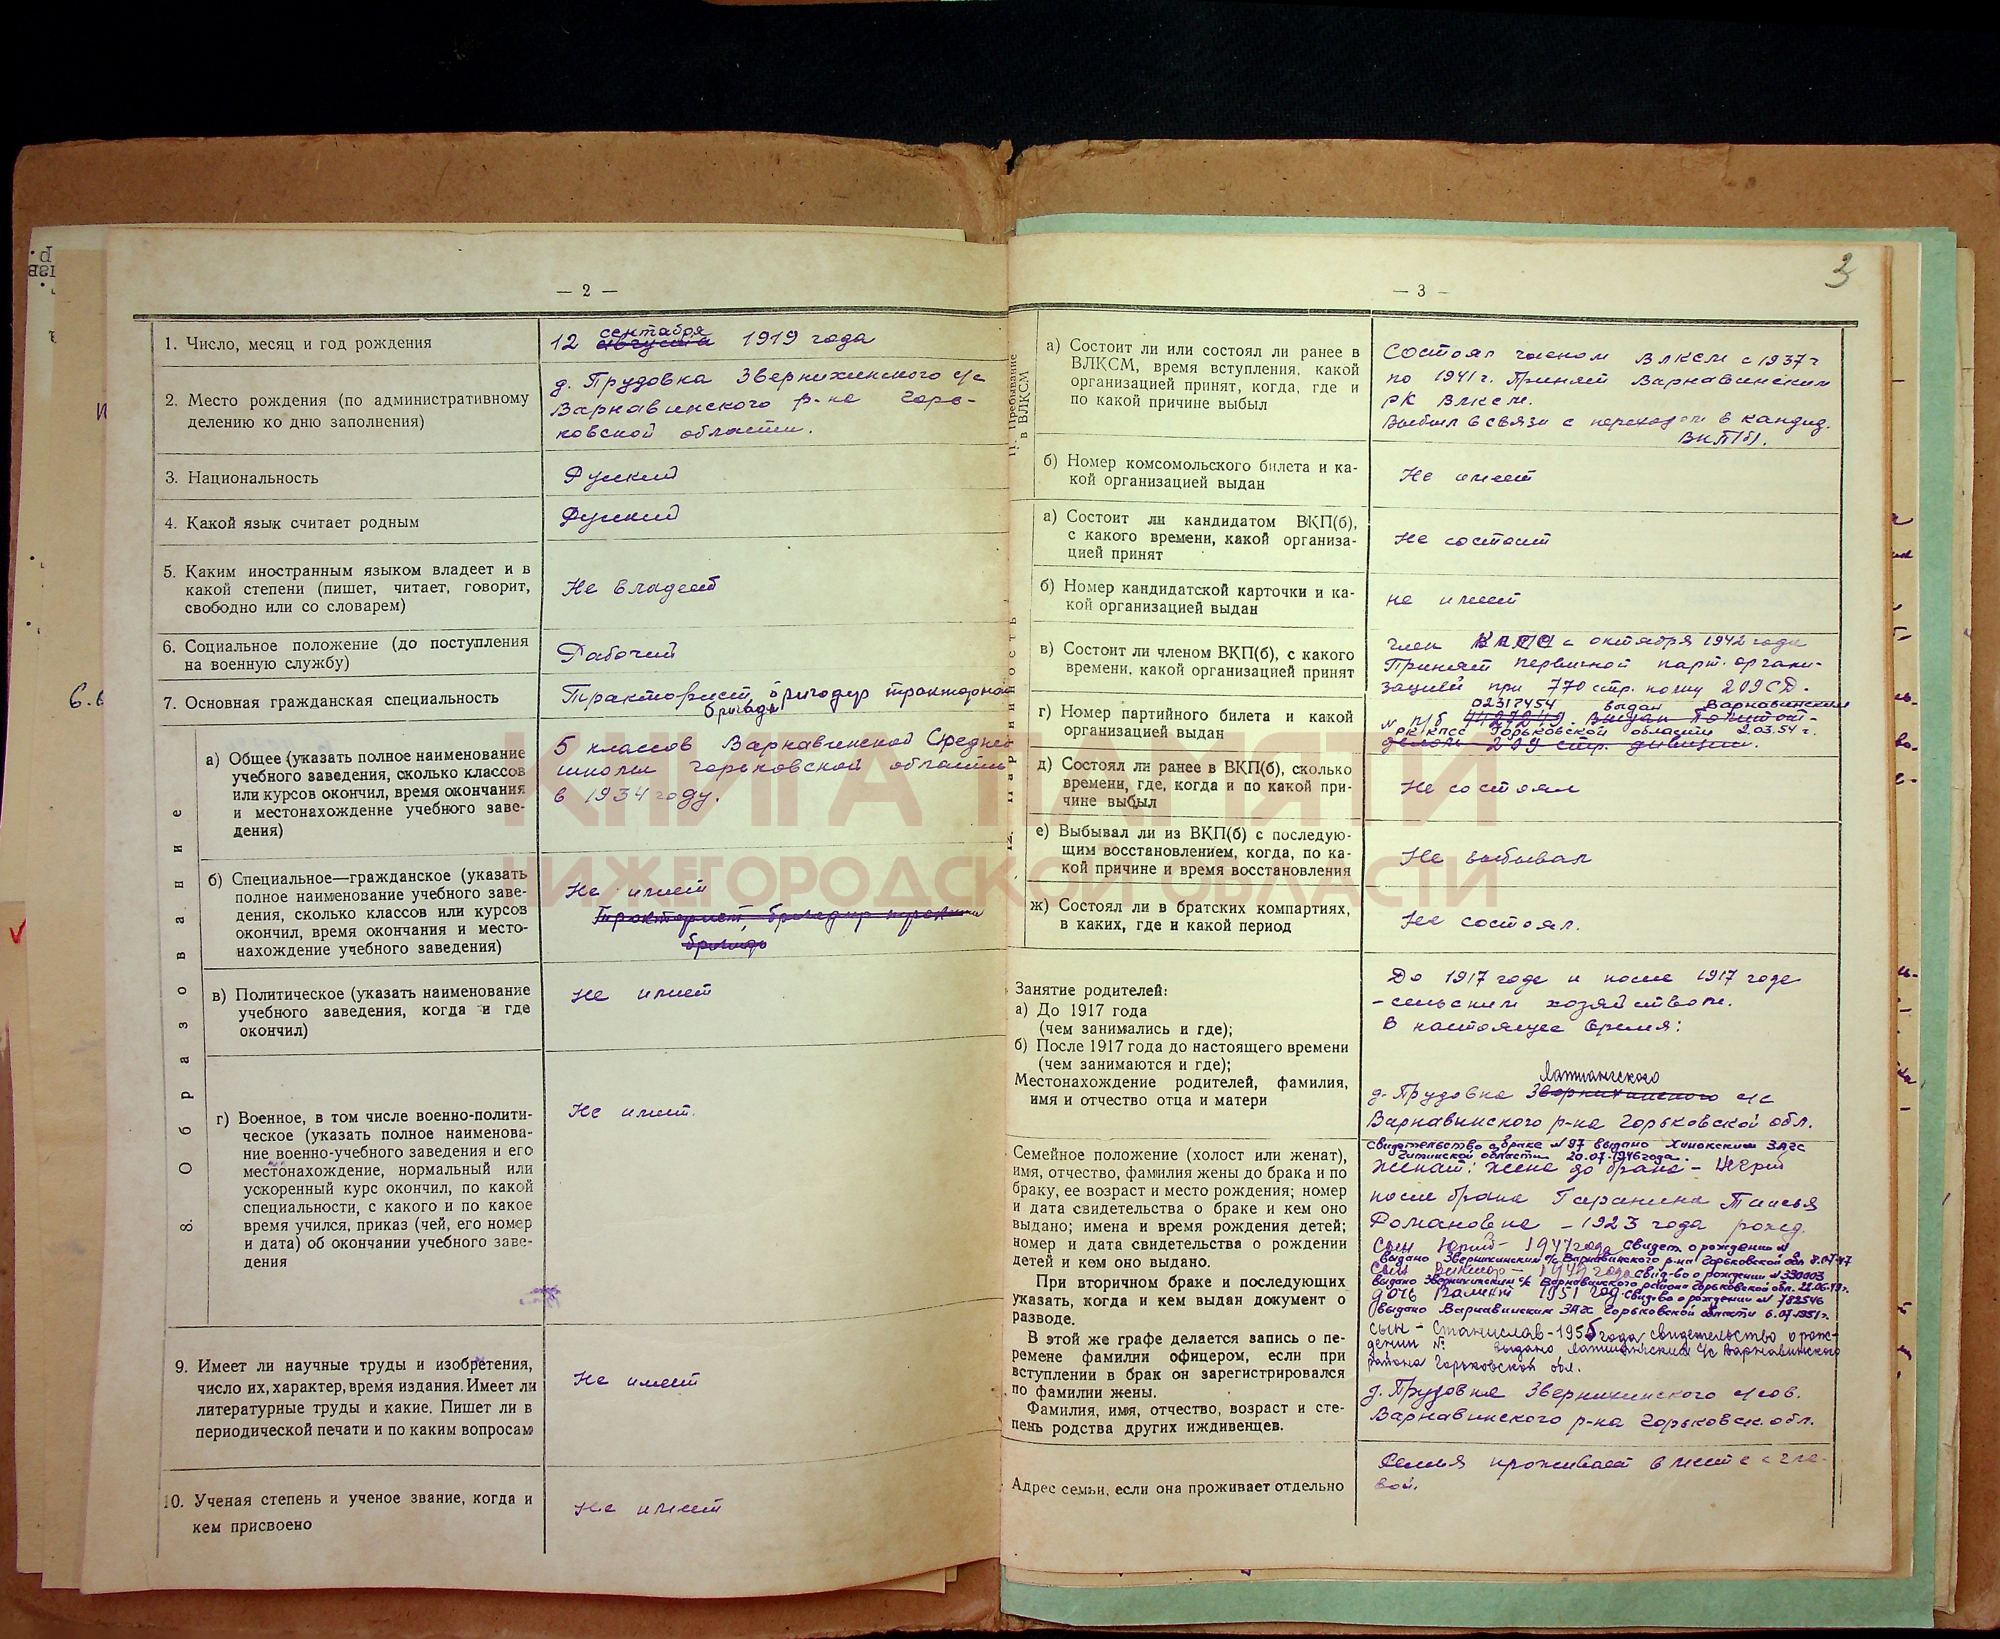 — 2 —
1. Число, месяц и год рождения
сентября
12 августа 1919 года
2. Место рождения (по административному
делению ко дню заполнения)
д. Трудовка Звернихинского с/с
Варнавинского р-на Горь-
ковской области.
3. Национальность
Русский
4. Какой язык считает родным
Русский
5. Каким иностранным языком владеет и в
какой степени (пишет, читает, говорит,
свободно или со словарем)
Не владеет
6. Социальное положение (до поступления
на военную службу)
Рабочий
7. Основная гражданская специальность
Тракторист, бригадир тракторной
бригады
8. Образование
а) Общее (указать полное наименование
учебного заведения, сколько классов
или курсов окончил, время окончания
и местонахождение учебного заве-
дения)
5 классов Варнавинской Средней
школы Горьковской области
в 1934 году.
б) Специальное—гражданское (указать
полное наименование учебного заве-
дения, сколько классов или курсов
окончил, время окончания и место-
нахождение учебного заведения)
Не имеет
Тракторист, бригадир
бригады
в) Политическое (указать наименование
учебного заведения, когда и где
окончил)
Не имеет
г) Военное, в том числе военно-полити-
ческое (указать полное наименова-
ние военно-учебного заведения и его
местонахождение, нормальный или
ускоренный курс окончил, по какой
специальности, с какого и по какое
время учился, приказ (чей, его номер
и дата) об окончании учебного заве-
дения
Не имеет.
9. Имеет ли научные труды и изобретения,
число их, характер, время издания. Имеет ли
литературные труды и какие. Пишет ли в
периодической печати и по каким вопросам
Не имеет
10. Ученая степень и ученое звание, когда и
кем присвоено
Не имеет
3
— 3 —
11. Пребывание
в ВЛКСМ
а) Состоит ли или состоял ли ранее в
ВЛКСМ, время вступления, какой
организацией принят, когда, где и
по какой причине выбыл
Состоял членом ВЛКСМ с 1937 г
по 1941 г. Принят Варнавинским
РК ВЛКСМ.
Выбыл в связи с переходом в кандид.
ВКП(б).
б) Номер комсомольского билета и ка-
кой организацией выдан
Не имеет
12. Партийность
а) Состоит ли кандидатом ВКП(б),
с какого времени, какой организа-
цией принят
Не состоит
б) Номер кандидатской карточки и ка-
кой организацией выдан
не имеет
в) Состоит ли членом ВКП(б), с какого
времени, какой организацией принят
член КПСС с октября 1942 года
Принят первичной парт. органи-
зацией при 770 стр. полку 209 СД.
г) Номер партийного билета и какой
организацией выдан
02317454 выдан Варнавинским
№ п/б 4427249. Выдан Политот-
РК КПСС Горьковской области 2.03.54 г.
делом 209 стр. дивизии.
д) Состоял ли ранее в ВКП(б), сколько
времени, где, когда и по какой при-
чине выбыл
Не состоял
е) Выбывал ли из ВКП(б) с последую-
щим восстановлением, когда, по ка-
кой причине и время восстановления
Не выбывал
ж) Состоял ли в братских компартиях,
в каких, где и какой период
Не состоял.
Занятие родителей:
а) До 1917 года
(чем занимались и где);
б) После 1917 года до настоящего времени
(чем занимаются и где);
Местонахождение родителей, фамилия,
имя и отчество отца и матери
До 1917 года и после 1917 года
– сельским хозяйством.
В настоящее время:
Лапшангского
д. Трудовка Звернихинского с/с
Варнавинского р-на Горьковской обл.
Семейное положение (холост или женат),
имя, отчество, фамилия жены до брака и по
браку, ее возраст и место рождения; номер
и дата свидетельства о браке и кем оно
выдано; имена и время рождения детей;
номер и дата свидетельства о рождении
детей и кем оно выдано.
При вторичном браке и последующих
указать, когда и кем выдан документ о
разводе.
В этой же графе делается запись о пе-
ремене фамилии офицером, если при
вступлении в брак он зарегистрировался
по фамилии жены.
Фамилия, имя, отчество, возраст и сте-
пень родства других иждивенцев.
Свидетельство о браке № 97 выдано ЗАГС
Читинской области 20.07.1946 года.
Женат: жена до брака –
после брака Гаранина Таисья
Романовна – 1923 года рожд.
Сын Юрий – 1947 года Свидет о рождении №
выдано Звернихинским с/с Варнавинского р-на Горьковской обл 8.07.47
Сын – 1949 года свид-во о рождении № 330003
выдано Звернихинским с/с Варнавинского района Горьковской обл. 22.06.49 г.
дочь 1951 год. Свид-во о рождении № 782546
выдано Варнавинским ЗАГС Горьковской области 6.07.1951 г.
сын – Станислав – 1955 года свидетельство о рож-
дении № выдано Лапшангским с/с Варнавинского
района Горьковской обл.
д. Трудовка Звернихинского с/сов.
Варнавинского р-на Горьковск. обл.
Адрес семьи, если она проживает отдельно
Семья проживает вместе с гла-
вой.
КНИГА ПАМЯТИ
НИЖЕГОРОДСКОЙ ОБЛАСТИ